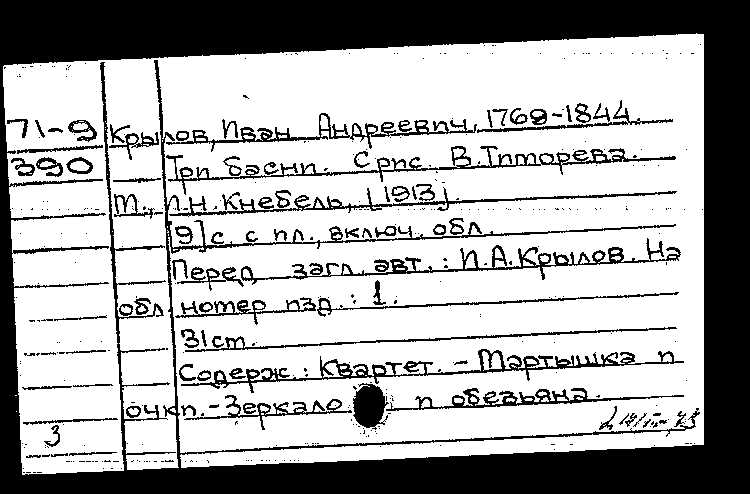 71-9 Крылов, Иван Андреевич, 1769-1844.
390 Три басни. С рис. В.Титорева.
М., И.Н.Кнебель, [1913].
[9] с. с ил., включ. обл.
Перед загл. авт.: И.А.Крылов. На
обл. номер изд.: 1.
31 ст.
Содерж.: Квартет. - Мартышка и
очки. - Зеркало и обезьяна.
3